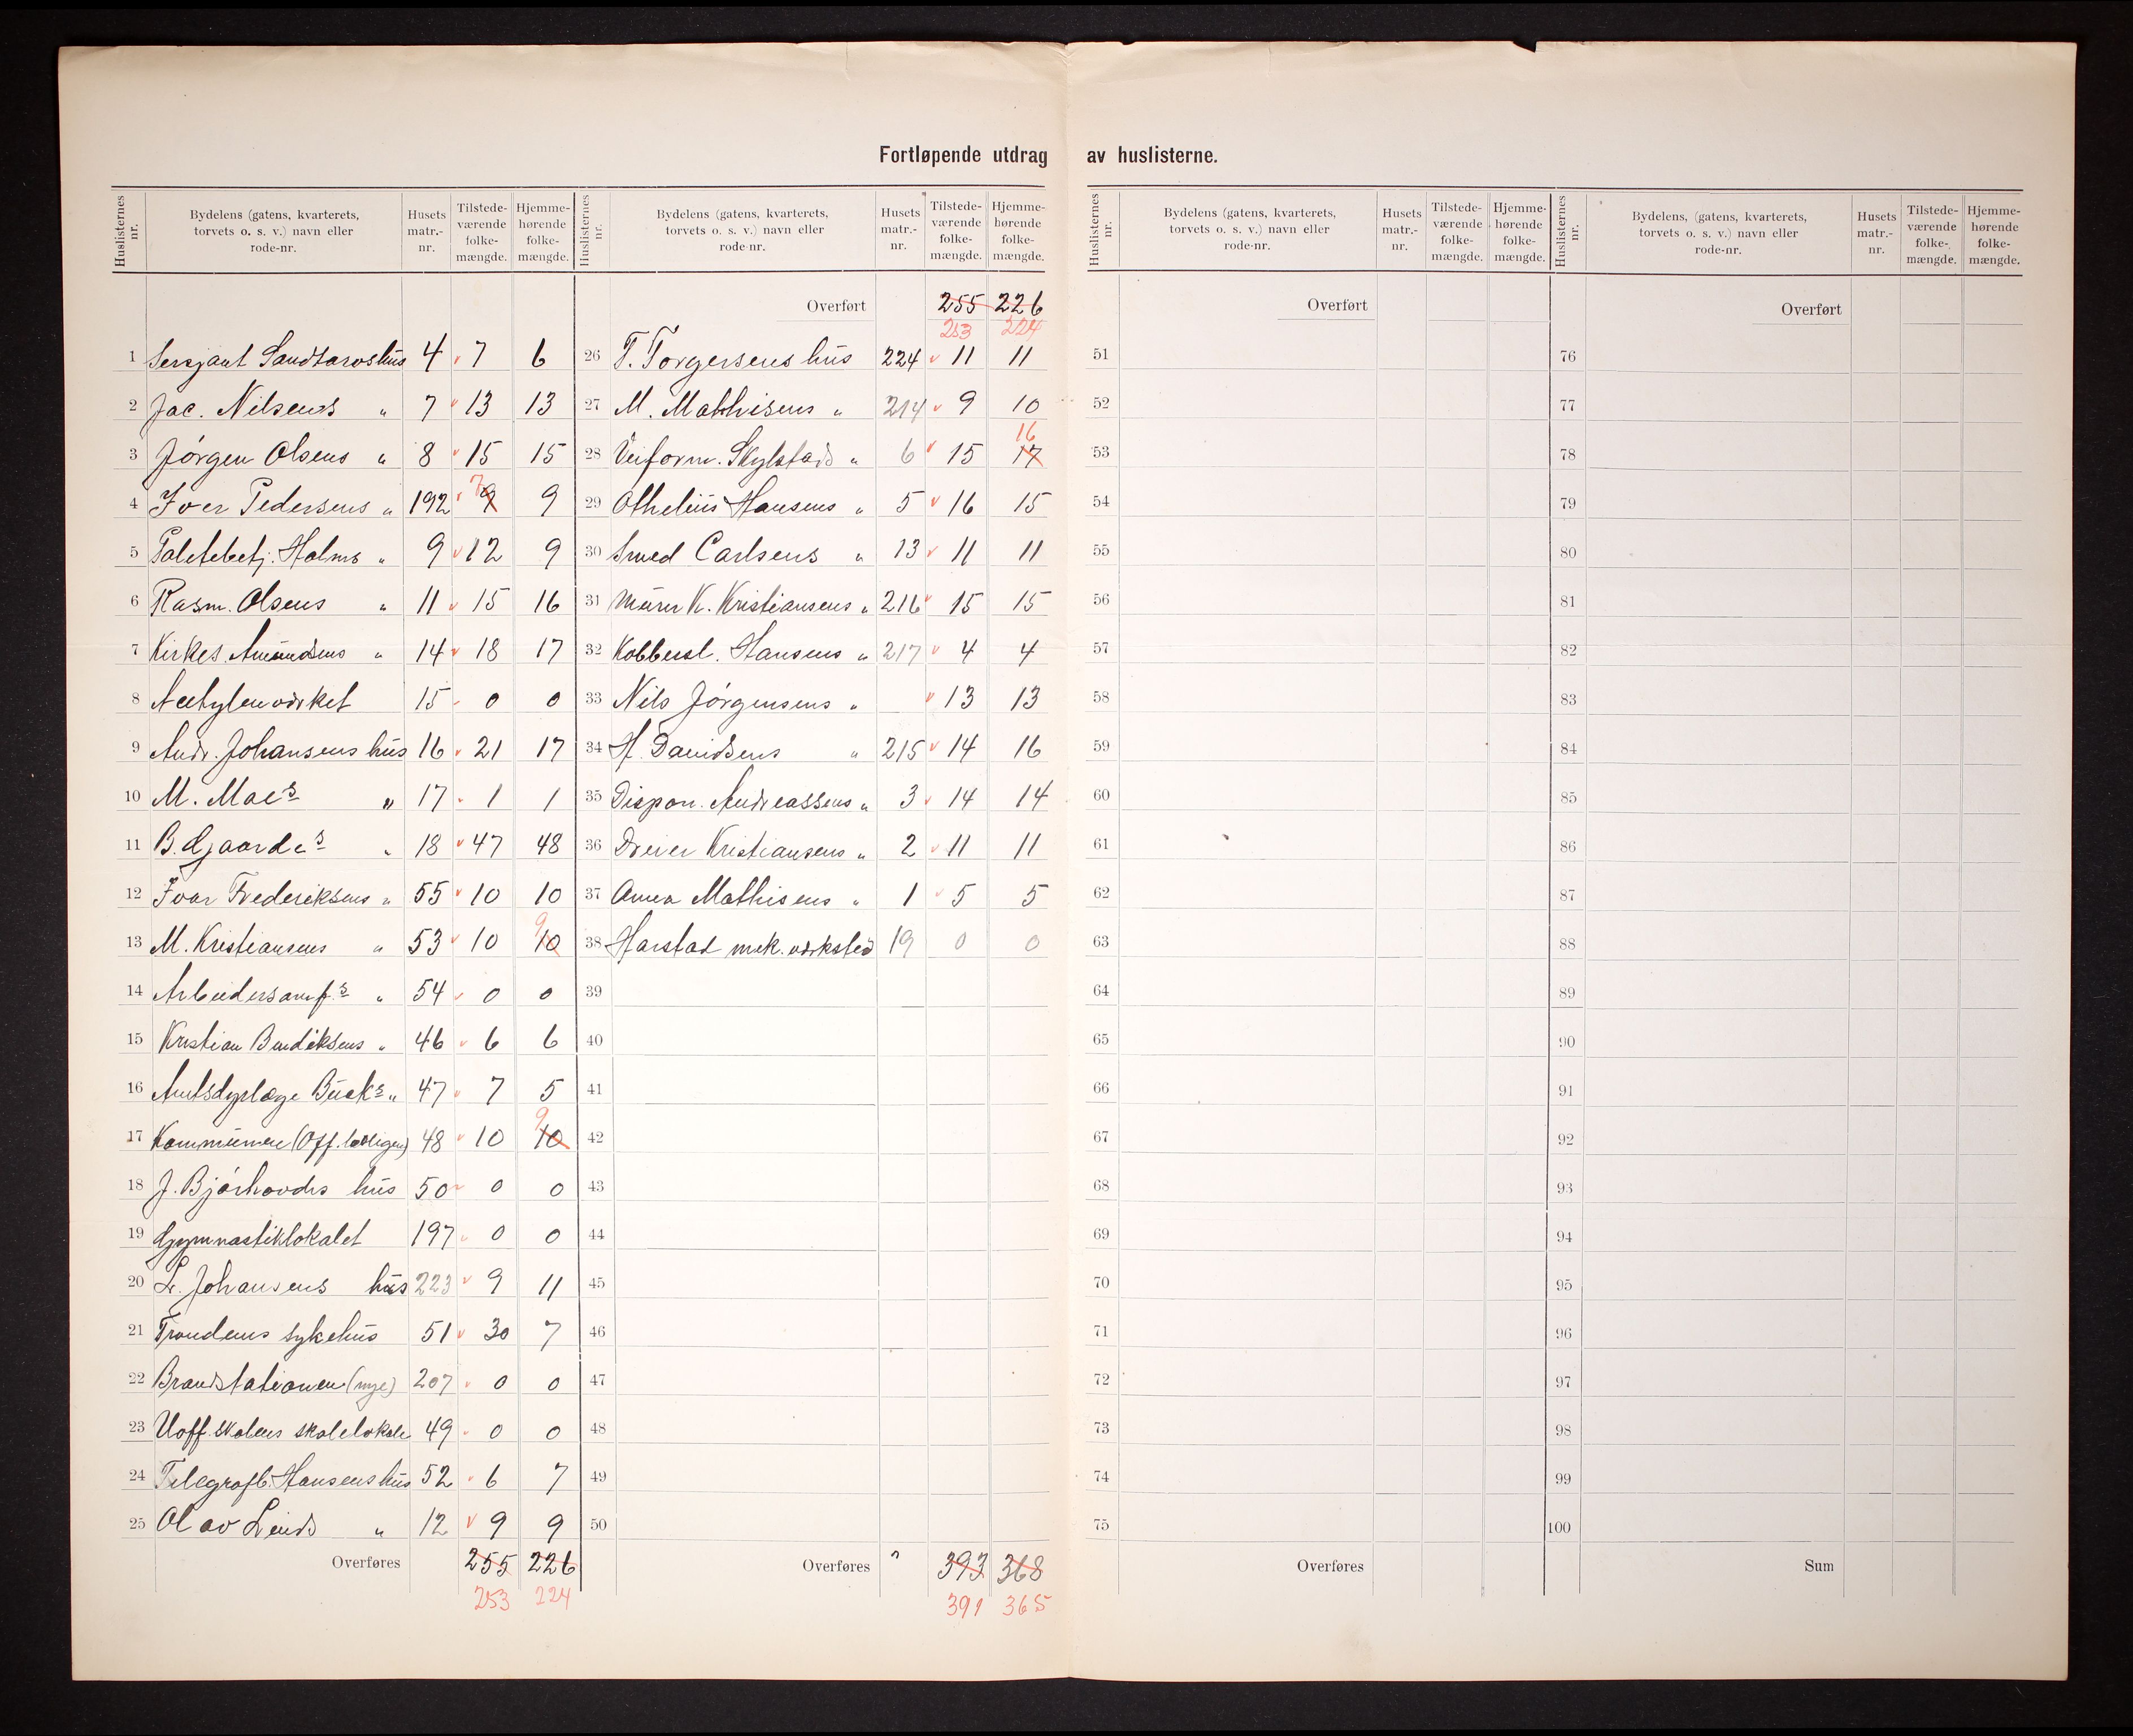 Fortløpende utdrag av huslisterne.
Huslisternes nr. Bydelens (gatens, kvarterets, torvets o. s. v.) navn eller rode-nr. Husets matr.-nr. Tilstedeværende folkemængde. Hjemmehørende folkemængde.
1 Sersjant Sandtarvs hus 4 7 6
2 Jac. Nilsens " 7 13 13
3 Jørgen Olsens " 8 15 15
4 Iver Pedersens " 192 9 7 9
5 Holms " 9 12 9
6 Rasm. Olsens " 11 15 16
7 Kirkes. Amundsens " 14 18 17
8 Acetylenverket 15 0 0
9 Andr. Johansens hus 16 21 17
10 M. Moe's " 17 1 1
11 B. Gjaarde's " 18 47 48
12 Ivar Frederiksens " 55 10 10
13 M. Kristiansens " 53 10 10 9
14 Arbeidersamf.s " 54 0 0
15 Kristian Bendiksens " 46 6 6
16 Amtsdyrlæge Buck's " 47 7 5
17 Kommunen (Off. 48 10 10 9
18 J. hus 50 0 0
19 Gymnastiklokalet 197 0 0
20 L. Johansens hus 223 9 11
21 Trondenes sykehus 51 30 7
22 Brandstationen (nye) 207 0 0
23 skolens skolelokale 49 0 0
24 Telegrafb. Hansens hus 52 6 7
25 Olav Linds " 12 9 9
Overføres 255 226
253 224
Huslisternes nr. Bydelens (gatens, kvarterets, torvets o. s. v.) navn eller rode-nr. Husets matr.-nr. Tilstedeværende folkemængde. Hjemmehørende folkemængde.
Overført 255 226
253 224
26 T. Torgersens hus 224 11 11
27 M. Mathisens " 214 9 10
28 Veiform. Skylstads " 6 15 17 16
29 Othelius Hansens " 5 16 15
30 Smed Carlsens " 13 11 11
31 Murer K. Kristiansens " 216 15 15
32 Kobbersl. Hansens " 217 4 4
33 Nils Jørgensens " 13 13
34 H. Davidsens " 215 14 16
35 Dispon. Andreassens " 3 14 14
36 Dreier Kristiansens " 2 11 11
37 Anna Mathisens " 1 5 5
38 Harstad mek. verksted 19 0 0
39
40
41
42
43
44
45
46
47
48
49
50
Overføres " 393 368
391 365
Huslisternes nr. Bydelens (gatens, kvarterets, torvets o. s. v.) navn eller rode-nr. Husets matr.-nr. Tilstedeværende folkemængde. Hjemmehørende folkemængde.
Overført
51
52
53
54
55
56
57
58
59
60
61
62
63
64
65
66
67
68
69
70
71
72
73
74
75
Overføres
Huslisternes nr. Bydelens, (gatens, kvarterets, torvets o. s. v.) navn eller rode-nr. Husets matr.-nr. Tilstedeværende folkemængde. Hjemmehørende folkemængde.
Overført
76
77
78
79
80
81
82
83
84
85
86
87
88
89
90
91
92
93
94
95
96
97
98
99
100
Sum